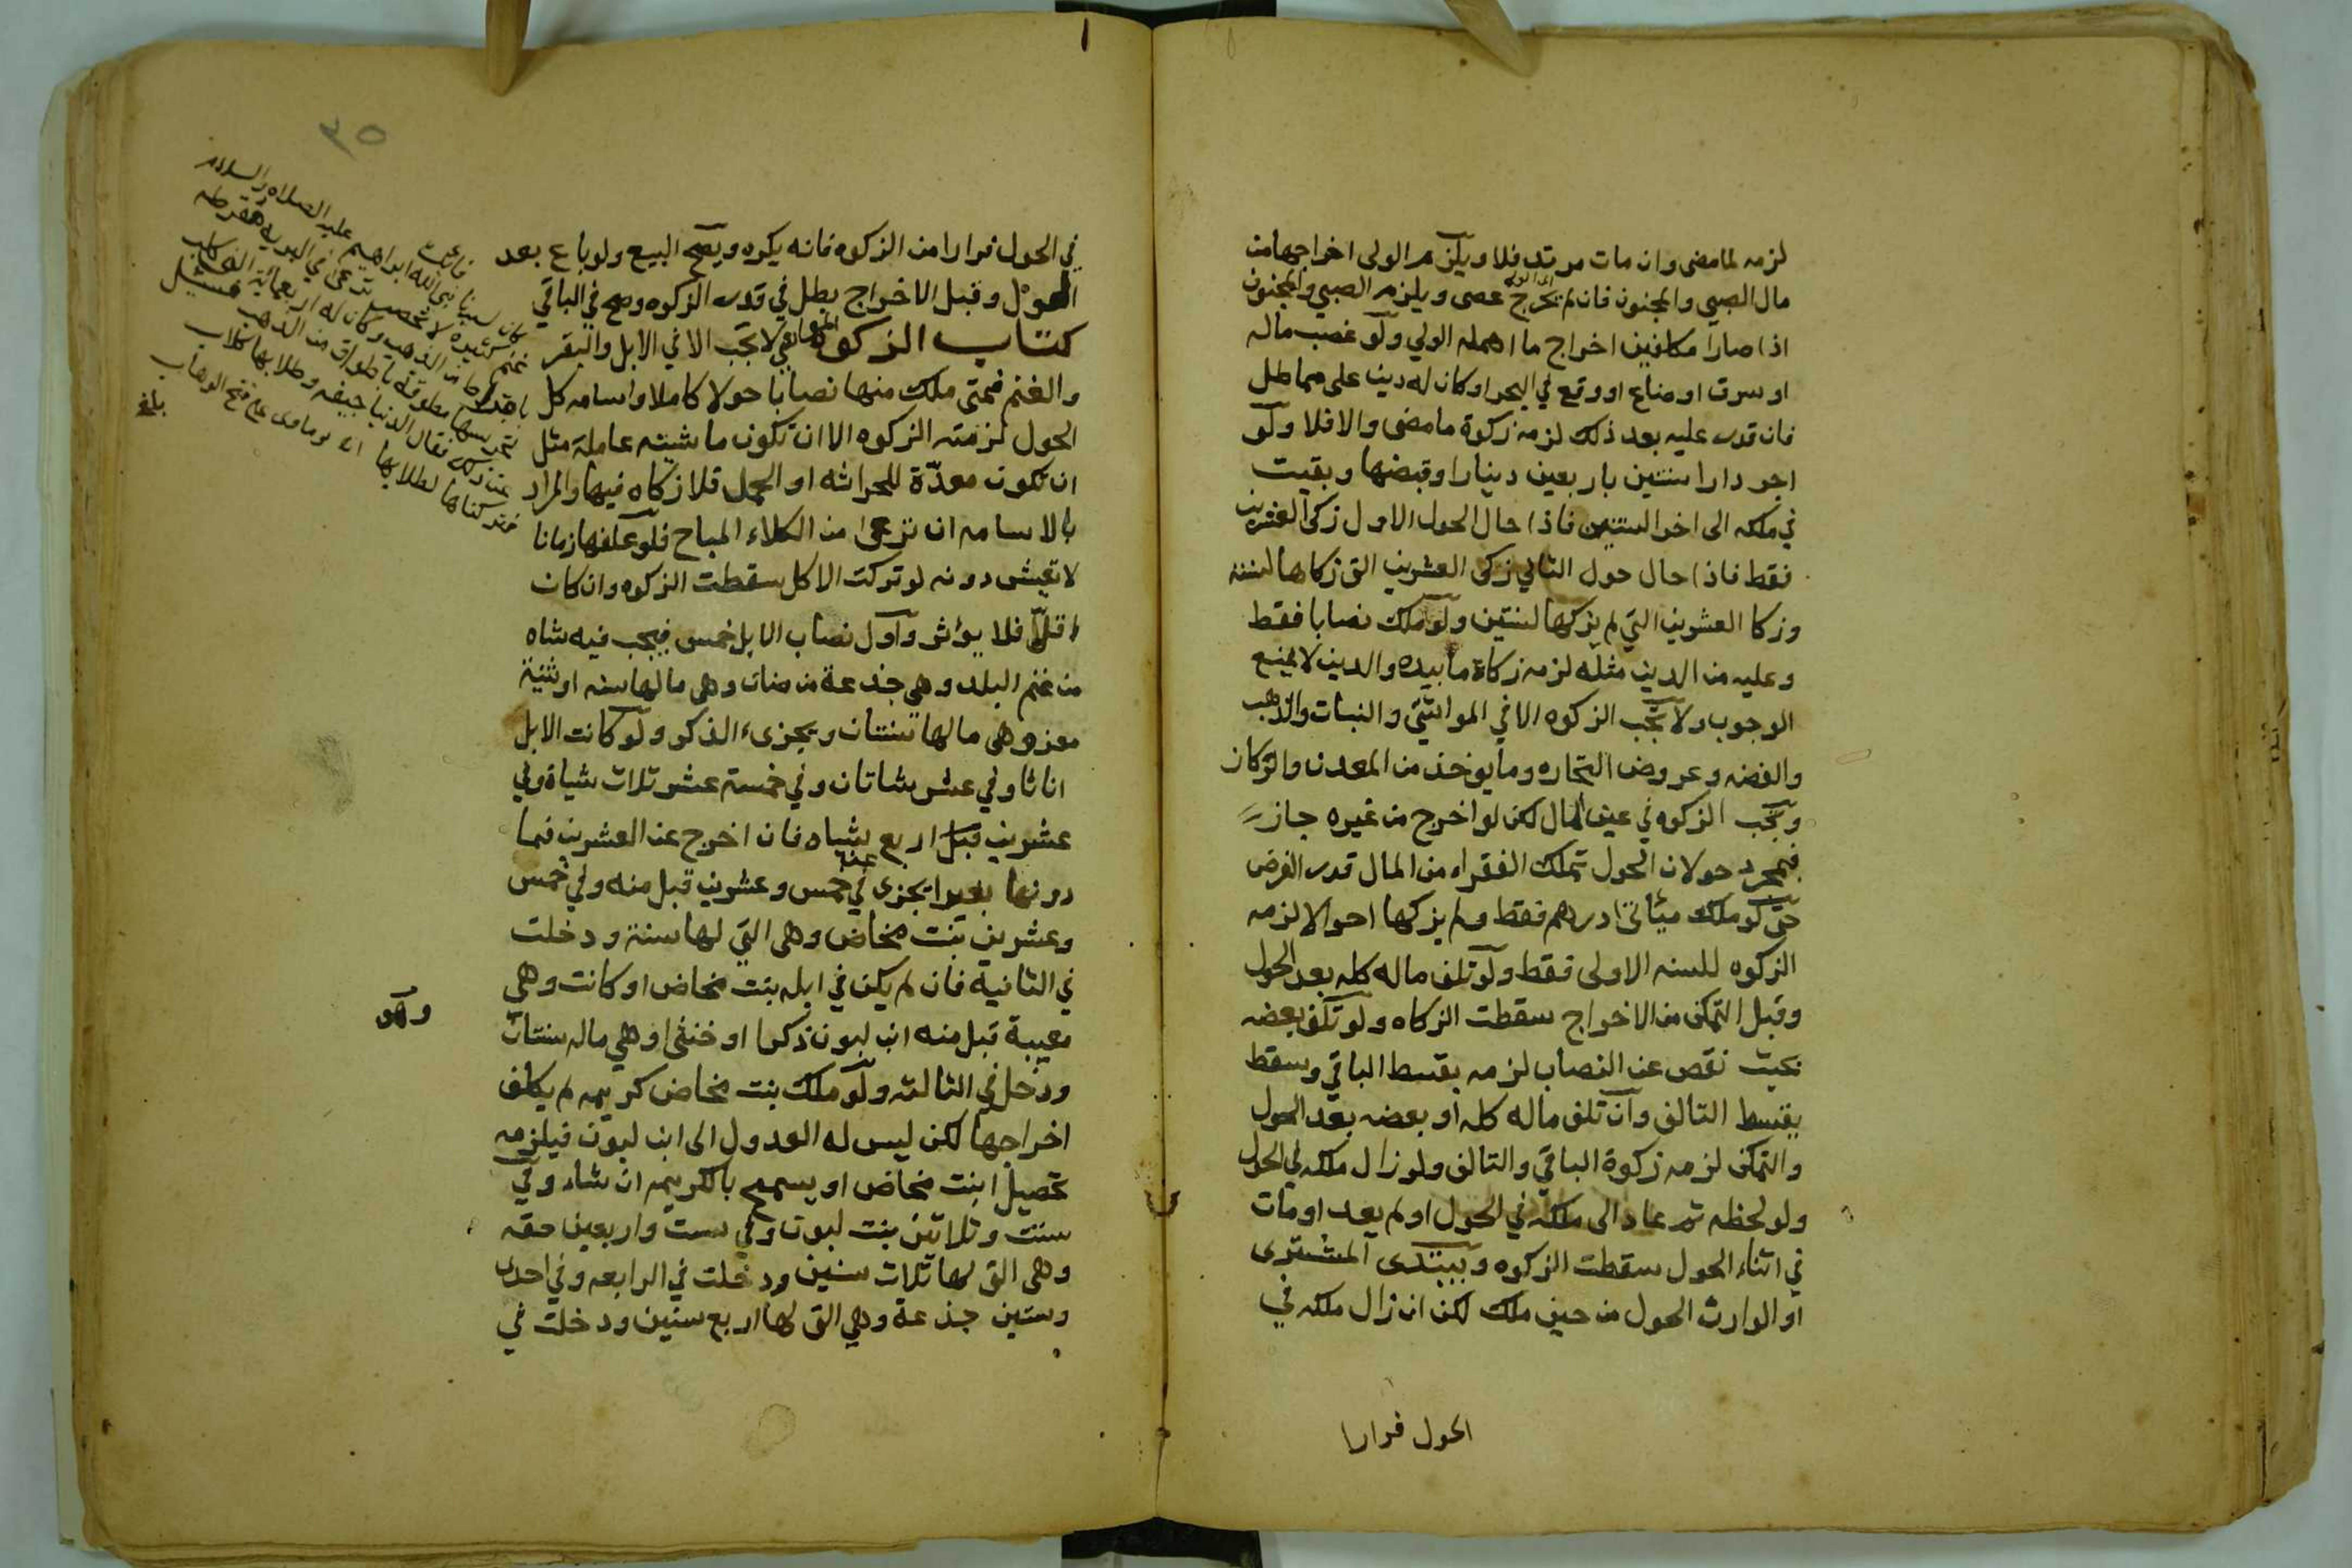 لزمه لما مضى وان مات مرتد فلا ويلزم الولى اخراجها من
مال الصبي والمجنون فان لم يخرج عصى ويلزم الصبي والمجنون
اذا صارا مكلفين اخراج ما اهمله الولي ولو غصب ماله
او سرق او ضاع او وقع في البحر او كان له دين على مماطل
فان قدر عليه بعد ذلك لزمه زكوة ما مضى والا فلا ولو
اجر دارا سنتين باربعين دينارا وقبضها وبقيت
في ملكه الى اخر السنتين فاذا حال الحول الاول زكى العشرين
فقط فاذا حال حول الثاني زكى العشرين التي زكاها لسنة
وزكا العشرين التي لم يزكها لسنتين ولو ملك نصابا فقط
وعليه من الدين مثله لزمه زكاة ما بيده والدين لا يمنع
الوجوب ولا تجب الزكوه الا في المواشي والنبات والذهب
والفضه وعروض التجاره وما يوخذ من المعدن والركاز
وتجب الزكوه في عين المال لكن لو اخرج من غيره جاز
فبمجرد حولان الحول تملك الفقراء من المال قدر الفرض
حتى لو ملك مئاتى درهم فقط ولم يزكها احوالا لزمه
الزكوه للسنه الاولى فقط ولو تلف ماله كله بعد الحول
وقبل التمكن من الاخراج سقطت الزكاه ولو تلف بعضه
بحيث نقص عن النصاب لزمه بقسط الباقي وسقط
بقسط التالف وان تلف ماله كله او بعضه بعد الحول
والتمكن لزمه زكوة الباقي والتالف ولو زال ملكه في الحول
ولو لحظه ثم عاد الى ملكه في الحول او لم يعد او مات
في اثناء الحول سقطت الزكوه ويبتدى المشترى
او الوارث الحول من حين ملك لكن ان زال ملكه في
الحول فرارا
٣٥
في الحول فرارا من الزكوه فانه يكره ويصح البيع ولو باع بعد
الحول وقبل الاخراج بطل في قدر الزكوه وصح في الباقي
كتاب الزكوة لا تجب الا في الابل والبقر
والغنم فمتى ملك منها نصابا حولا كاملا واسامه كل
الحول لزمته الزكوه الا ان تكون ماشيته عاملة مثل
ان تكون معدّة للحراثه او الحمل فلا زكاه فيها والمراد
بالاسامه ان ترعى من الكلاء المباح فلو علفها زمانا
لا تعيش دونه لو تركت الاكل سقطت الزكوه وان كان
اقلّ فلا يؤثر واول نصاب الابل خمس فيجب فيه شاه
من غنم البلد وهي جذعة من ضان وهى ما لها سنه او ثنية
معز وهى ما لها سنتان ويجزىء الذكر ولو كانت الابل
اناثا وفي عشر شاتان وفي خمسة عشر ثلاث شياة وفي
عشرين اربع شياه فان اخرج عن العشرين فما
دونها بعيرا يجزى عن خمس وعشرين قبل منه وفي خمس
وعشرين بنت مخاض وهى التي لها سنة ودخلت
في الثانية فان لم يكن في ابله بنت مخاض او كانت وهي
معيبة قبل منه ابن لبون ذكرا او خنثى وهي ماله سنتان
ودخل في الثالثه ولو ملك بنت مخاض كريمه لم يكلف
اخراجها لكن ليس له العدول الى ابن لبون فيلزمه
تحصيل ابنت مخاض او يسمح بالكريمه ان شاء وفي
ست وثلاثين بنت لبون وفي ست واربعين حقه
وهى التى لها ثلاث سنين ودخلت في الرابعه وفي احدى
وستين جذعة وهي التى لها اربع سنين ودخلت في
وهو
فائدة
كان سيدنا نبي الله ابراهيم عليه الصلاه والسلام
غنم كثيره لا تحصى ترعى في البريه
من الذهب وكان له اربعمائة الف كلب
تحرسها مطوقة باطواق من الذهب فسئل
عن ذلك فقال الدنيا جيفه وطلابها كلاب
فتركناها لطلابها